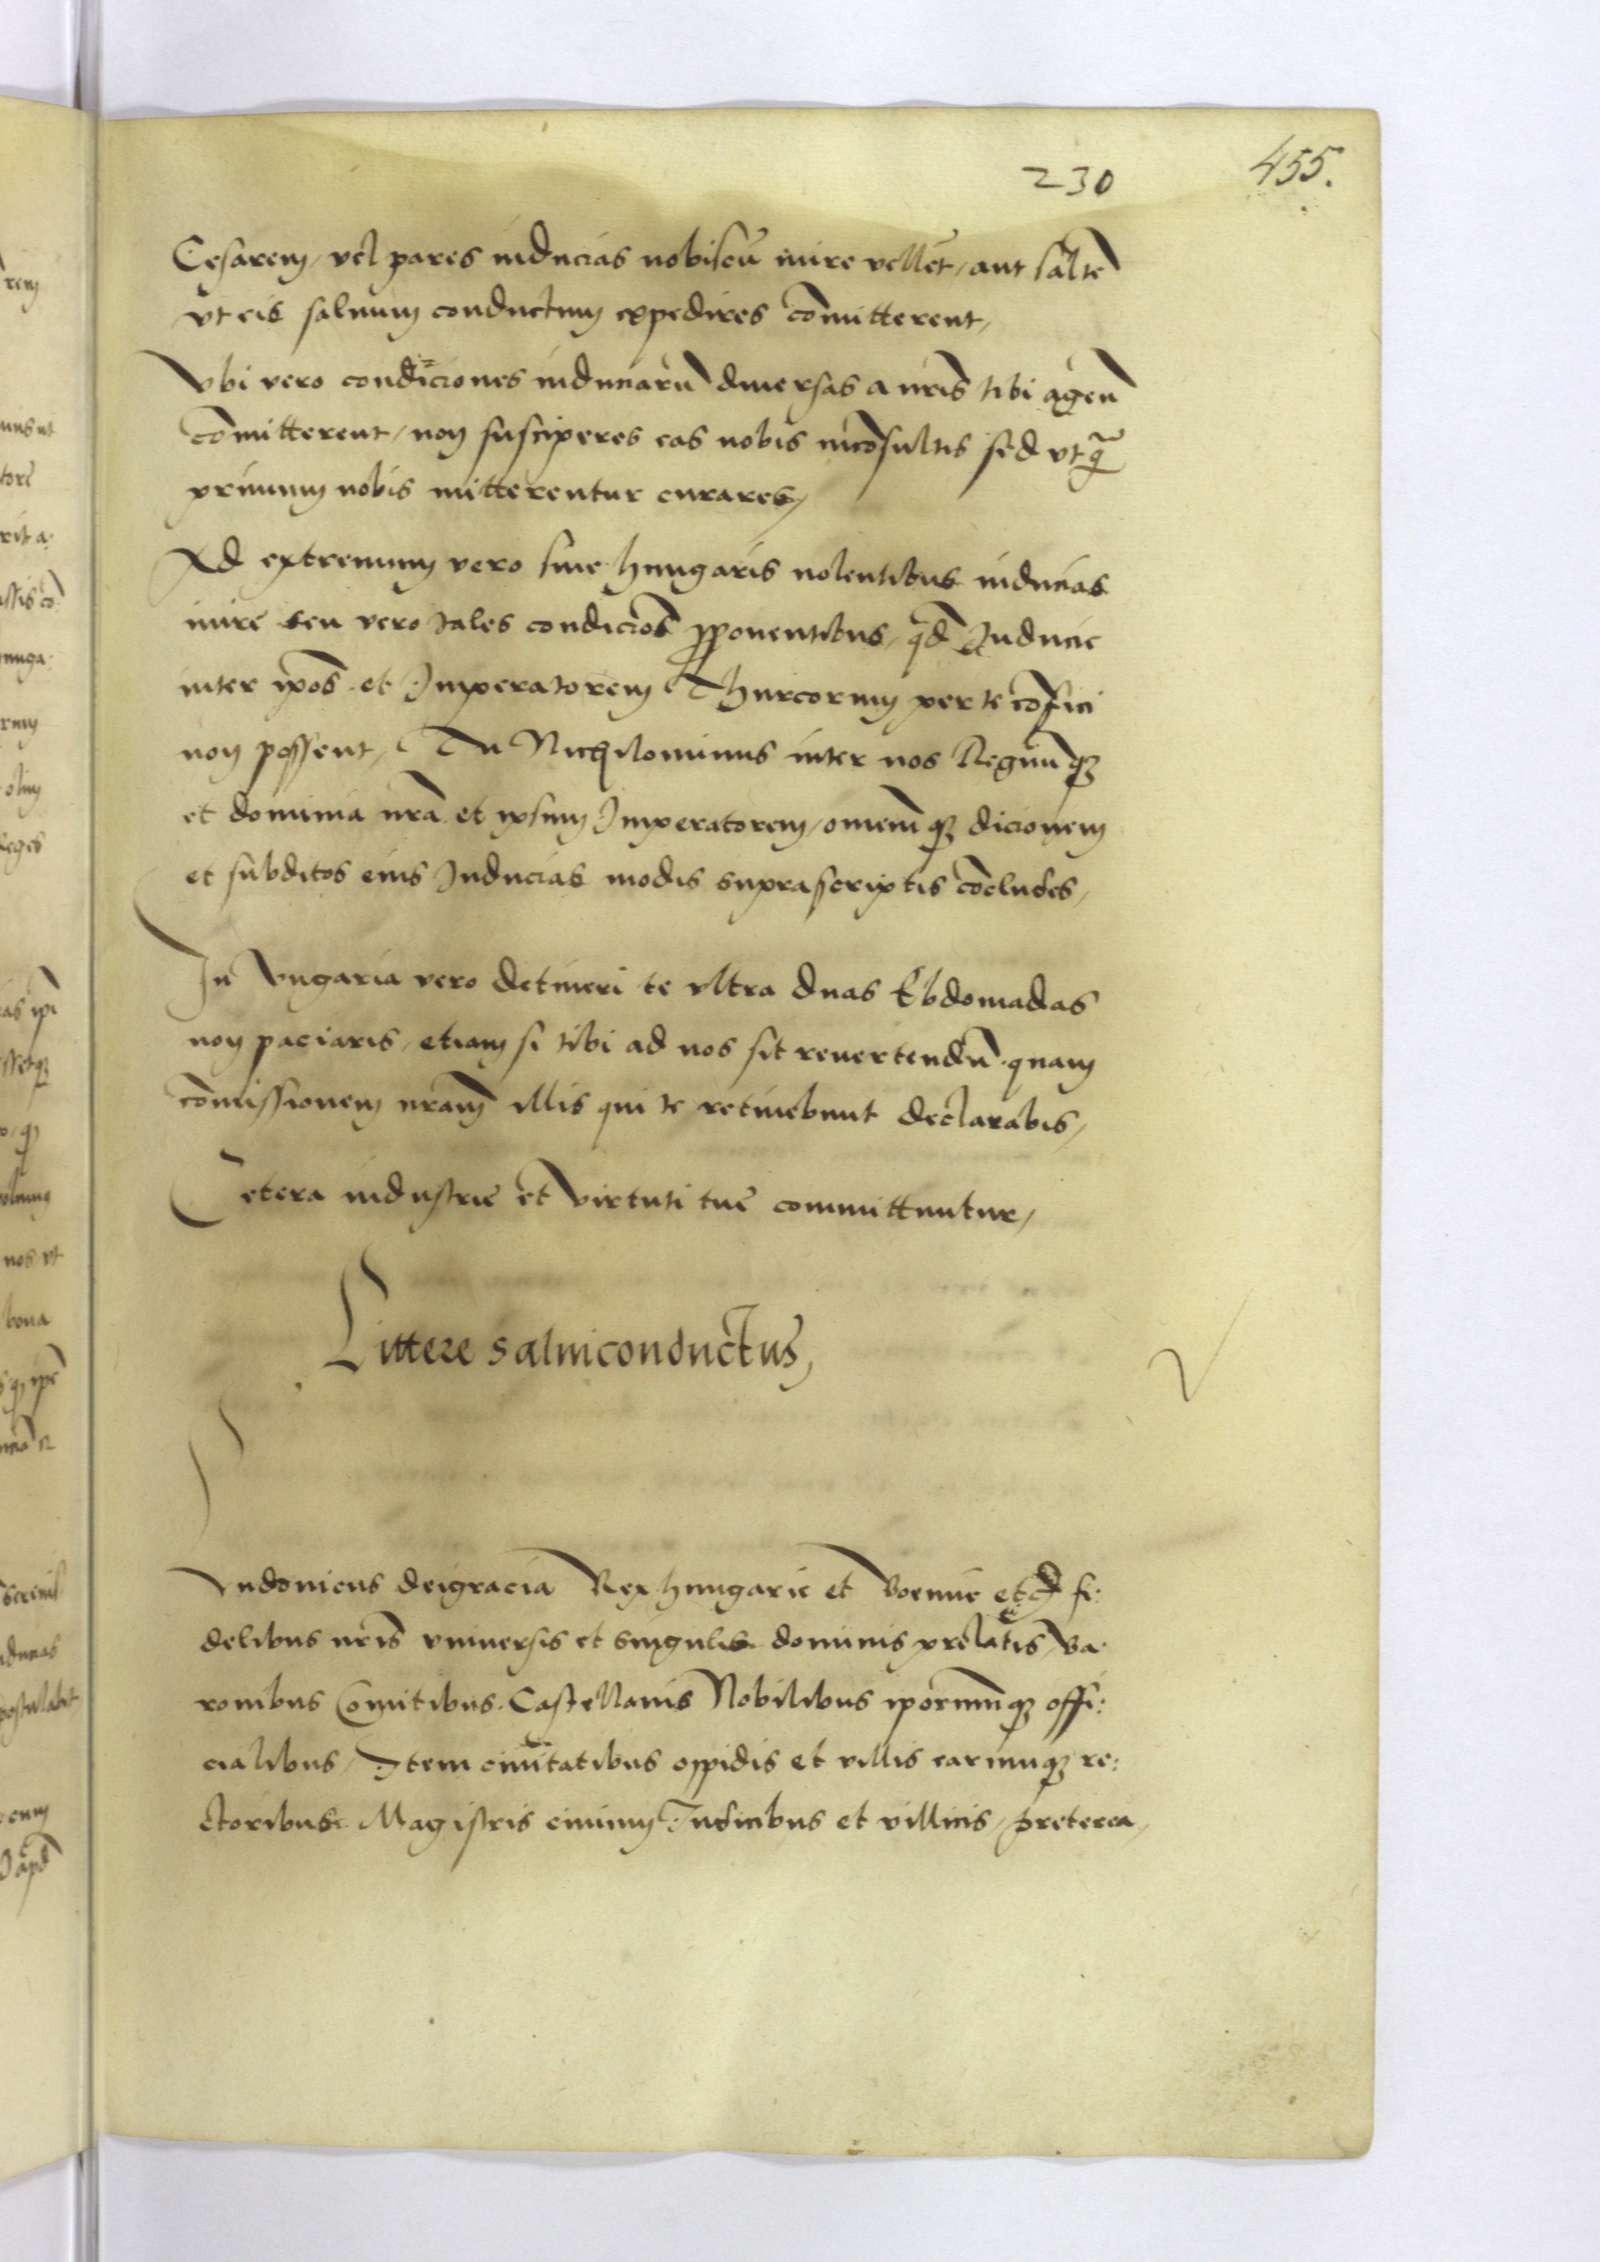 230
455.
Cesarem, vel pares inducias nobiscū inire vellēt, aut saltē
vt eis saluum conductum expedires com̄itterent,
Vbi vero condiciones induciarū diuersas a nr̄is tibi agen̄
com̄itterent, non susciperes eas nobis incōsultis sed vt q̄
primum nobis mitterentur curares,
Ad extremum vero siue hungaris nolentibus inducias
inire seu vero tales condiciōs proponentibus, qd̄ Inducie
inter ip̄os et Imperatorem Thurcorum per te cōfici
non possent, Tu Nichilominus inter nos Regnūq;
et dominia nr̄a et ipsum Imperatorem, omnemq; dicionem
et subditos eius Inducias modis suprascriptis cōcludes,
In Vngaria vero detineri te vltra duas Ebdomadas
non paciaris, etiam si tibi ad nos sit reuertendū. quam
com̄issionem nr̄am illis qui te retinebunt declarabis,
Cetera industrie et Virtuti tue committuntur,
Littere saluiconductus,
Ludouicus deigracia Rex hungarie et Boemie etc̄ fi:
delibus nr̄is vniuersis et singulis dominis prelatis, Ba:
ronibus Comitibus. Castellanis Nobilibus ip̄orumq; offi:
cialibus, Item ciuitatibus oppidis et villis earumq; re:
ctoribus. Magistris ciuium Iudicibus et villicis, preterea,